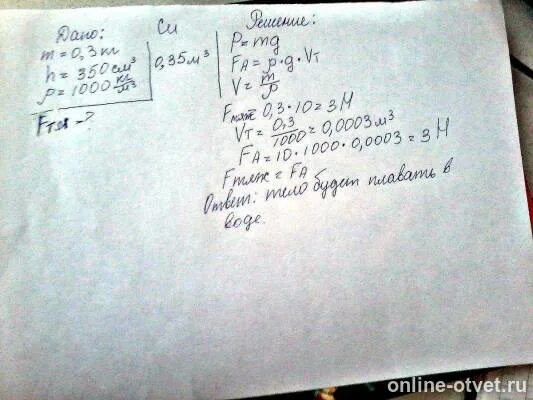 Дано:
m = 0,3 кг
h = 350 см³
ρ = 1000 кг/м³
Fтяж - ?
Си
0,35 м³
Решение:
P = mg
FA = ρ·g·Vт
V = m/ρ
Fтяж = 0,3·10 = 3 Н
Vт = 0,3/1000 = 0,0003 м³
FA = 10·1000·0,0003 = 3 Н
Fтяж = FA
Ответ: тело будет плавать в
воде.
online-otvet.ru